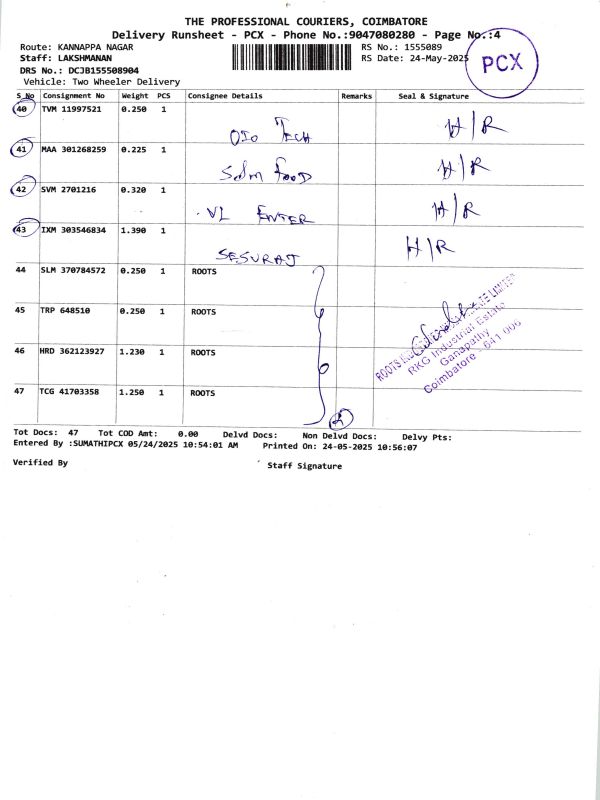 THE PROFESSIONAL COURIERS, COIMBATORE
Delivery Runsheet - PCX - Phone No.:9047080280 - Page No.:4
Route: KANNAPPA NAGAR RS No.: 1555089
Staff: LAKSHMANAN RS Date: 24-May-2025
PCX
DRS No.: DCJB155508904
Vehicle: Two Wheeler Delivery
S_No Consignment No Weight PCS Consignee Details Remarks Seal & Signature
40 TVM 11997521 0.250 1 H/R
OIO TECH
41 MAA 301268259 0.225 1 H/R
Sdm FOOD
42 SVM 2701216 0.320 1 H/R
VL ENTER
43 IXM 303546834 1.390 1 H/R
SESURAJ
44 SLM 370784572 0.250 1 ROOTS
45 TRP 648510 0.250 1 ROOTS
46 HRD 362123927 1.230 1 ROOTS
47 TCG 41703358 1.250 1 ROOTS
ROOTS LIMITED
RKG Industrial Estate
Ganapathy
Coimbatore - 641 006
Tot Docs: 47 Tot COD Amt: 0.00 Delvd Docs: Non Delvd Docs: Delvy Pts:
Entered By :SUMATHIPCX 05/24/2025 10:54:01 AM Printed On: 24-05-2025 10:56:07
Verified By Staff Signature